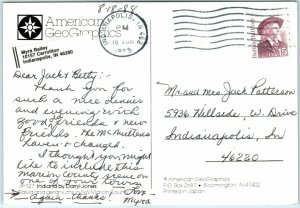 8-18-88
American
GeoGraphics
INDIANAPOLIS, IN 462
PM
18 AUG
1988
Myra Bailey
10107 Carrollton
Indianapolis, IN 46280
Dear Jack & Betty:-
Thank you for
such a nice dinner
and evening with
good friends & new
friends. The McMullens
haven't changed.
I thought you might
like to include this
Marion County scene on
one of your tours
Love
Myra
Again-thanks!
Mr. and Mrs Jack Patterson
5936 Hillside, W. Drive
Indianapolis, In
46220
IP 127 Indiana by Darryl Jones
© American GeoGraphics
P.O. Box 2687 • Bloomington, IN 47402
Printed in Japan